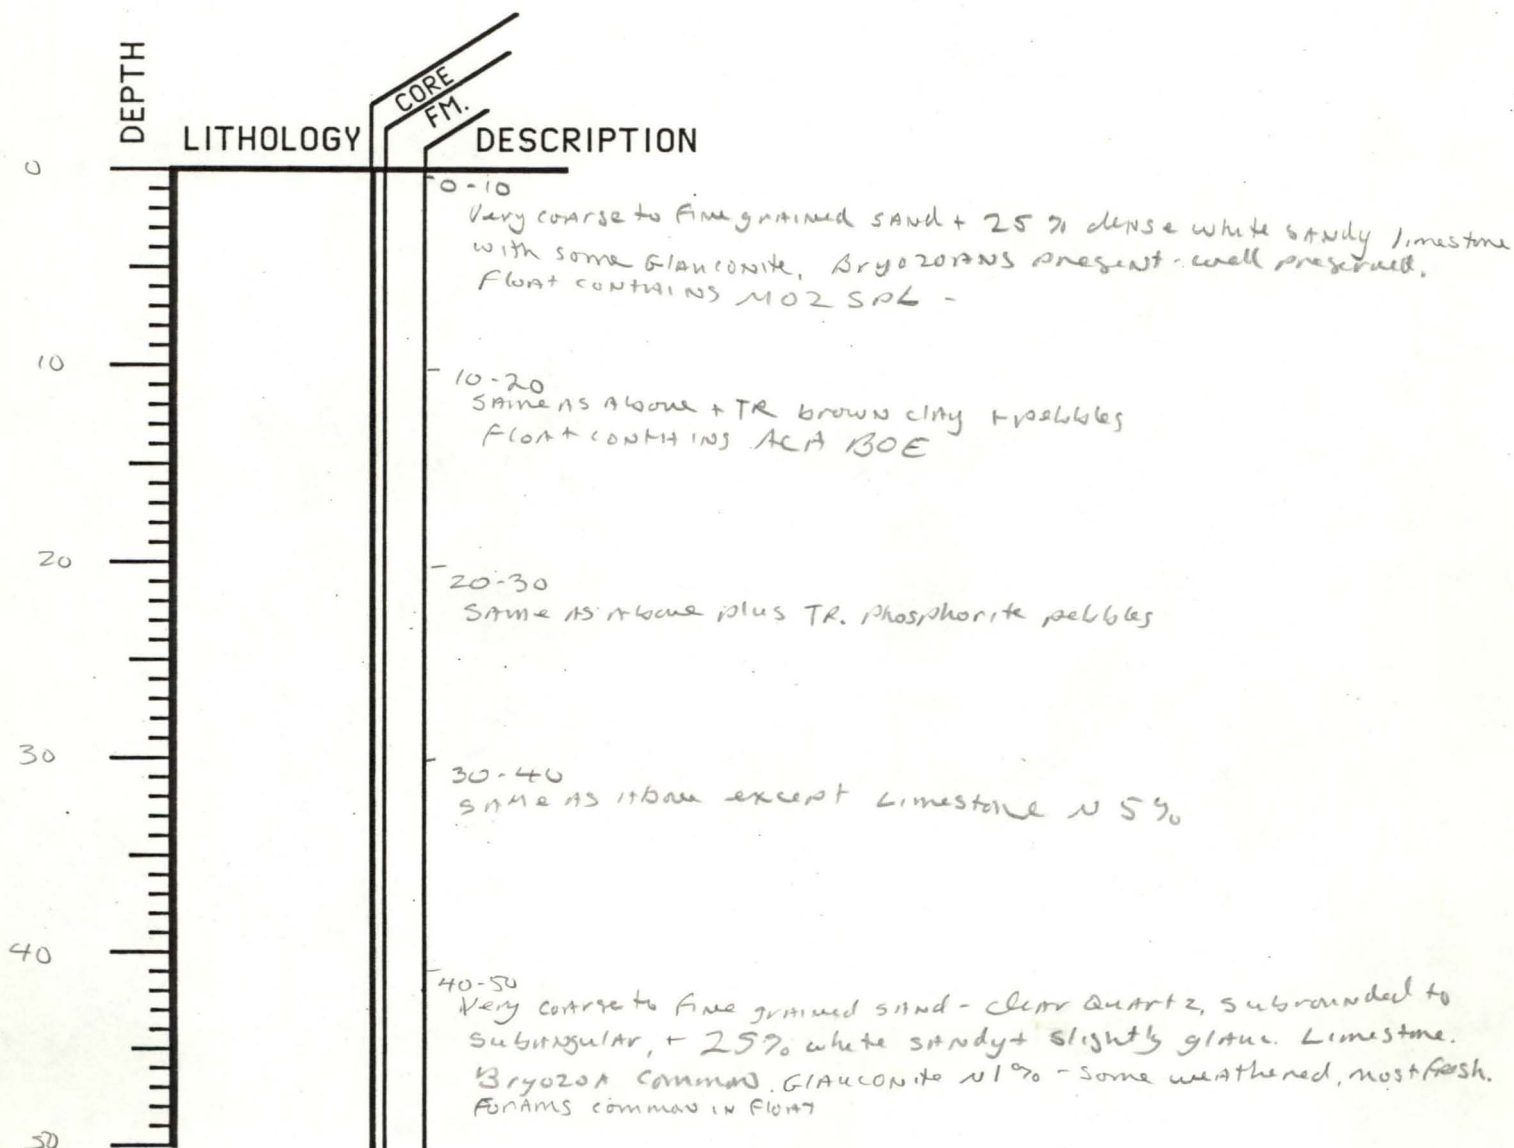 DEPTH
LITHOLOGY
CORE
FM.
DESCRIPTION
0
0-10
Very coarse to fine grained sand + 25% dense white sandy limestone
with some Glauconite. Bryozoans present - well preserved.
Float contains MO2 SPL -
10
10-20
Same as above + TR brown clay + pebbles
Float contains ACA BOE
20
20-30
Same as above plus TR. phosphorite pebbles
30
30-40
Same as above except Limestone ~ 5%
40
40-50
Very coarse to fine grained sand - clear Quartz, subrounded to
subangular, + 25% white sandy + slightly glauc. Limestone.
Bryozoa common. Glauconite ~1% - some weathered, most fresh.
Forams common in Float
50